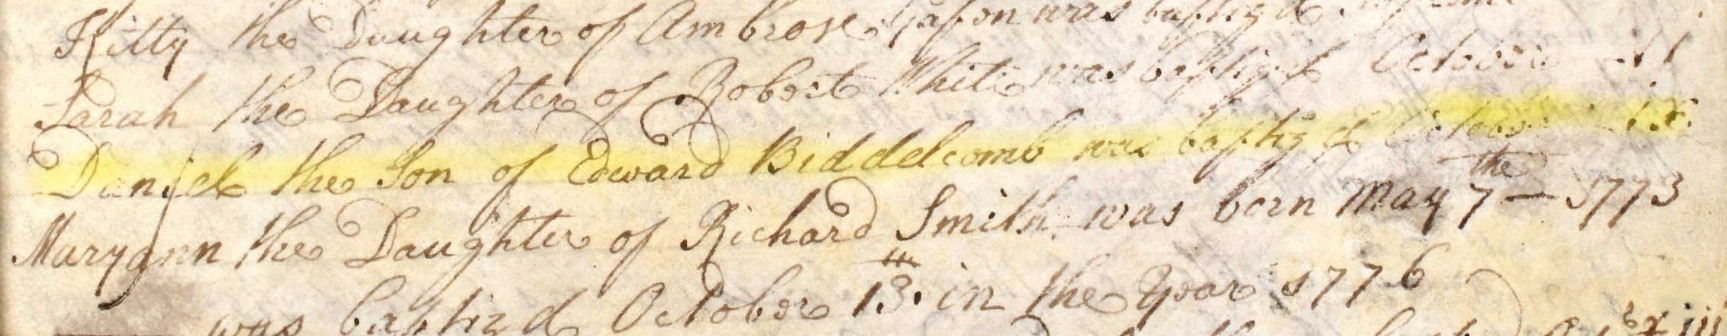 Kitty the Daughter of Ambrose was baptiz'd
Sarah the Daughter of Robert White was baptiz'd October
Daniel the Son of Edward Biddelcomb was baptiz'd October
Maryann the Daughter of Richard Smith was born May 7 the 1773
was baptizd October 13th in the Year 1776